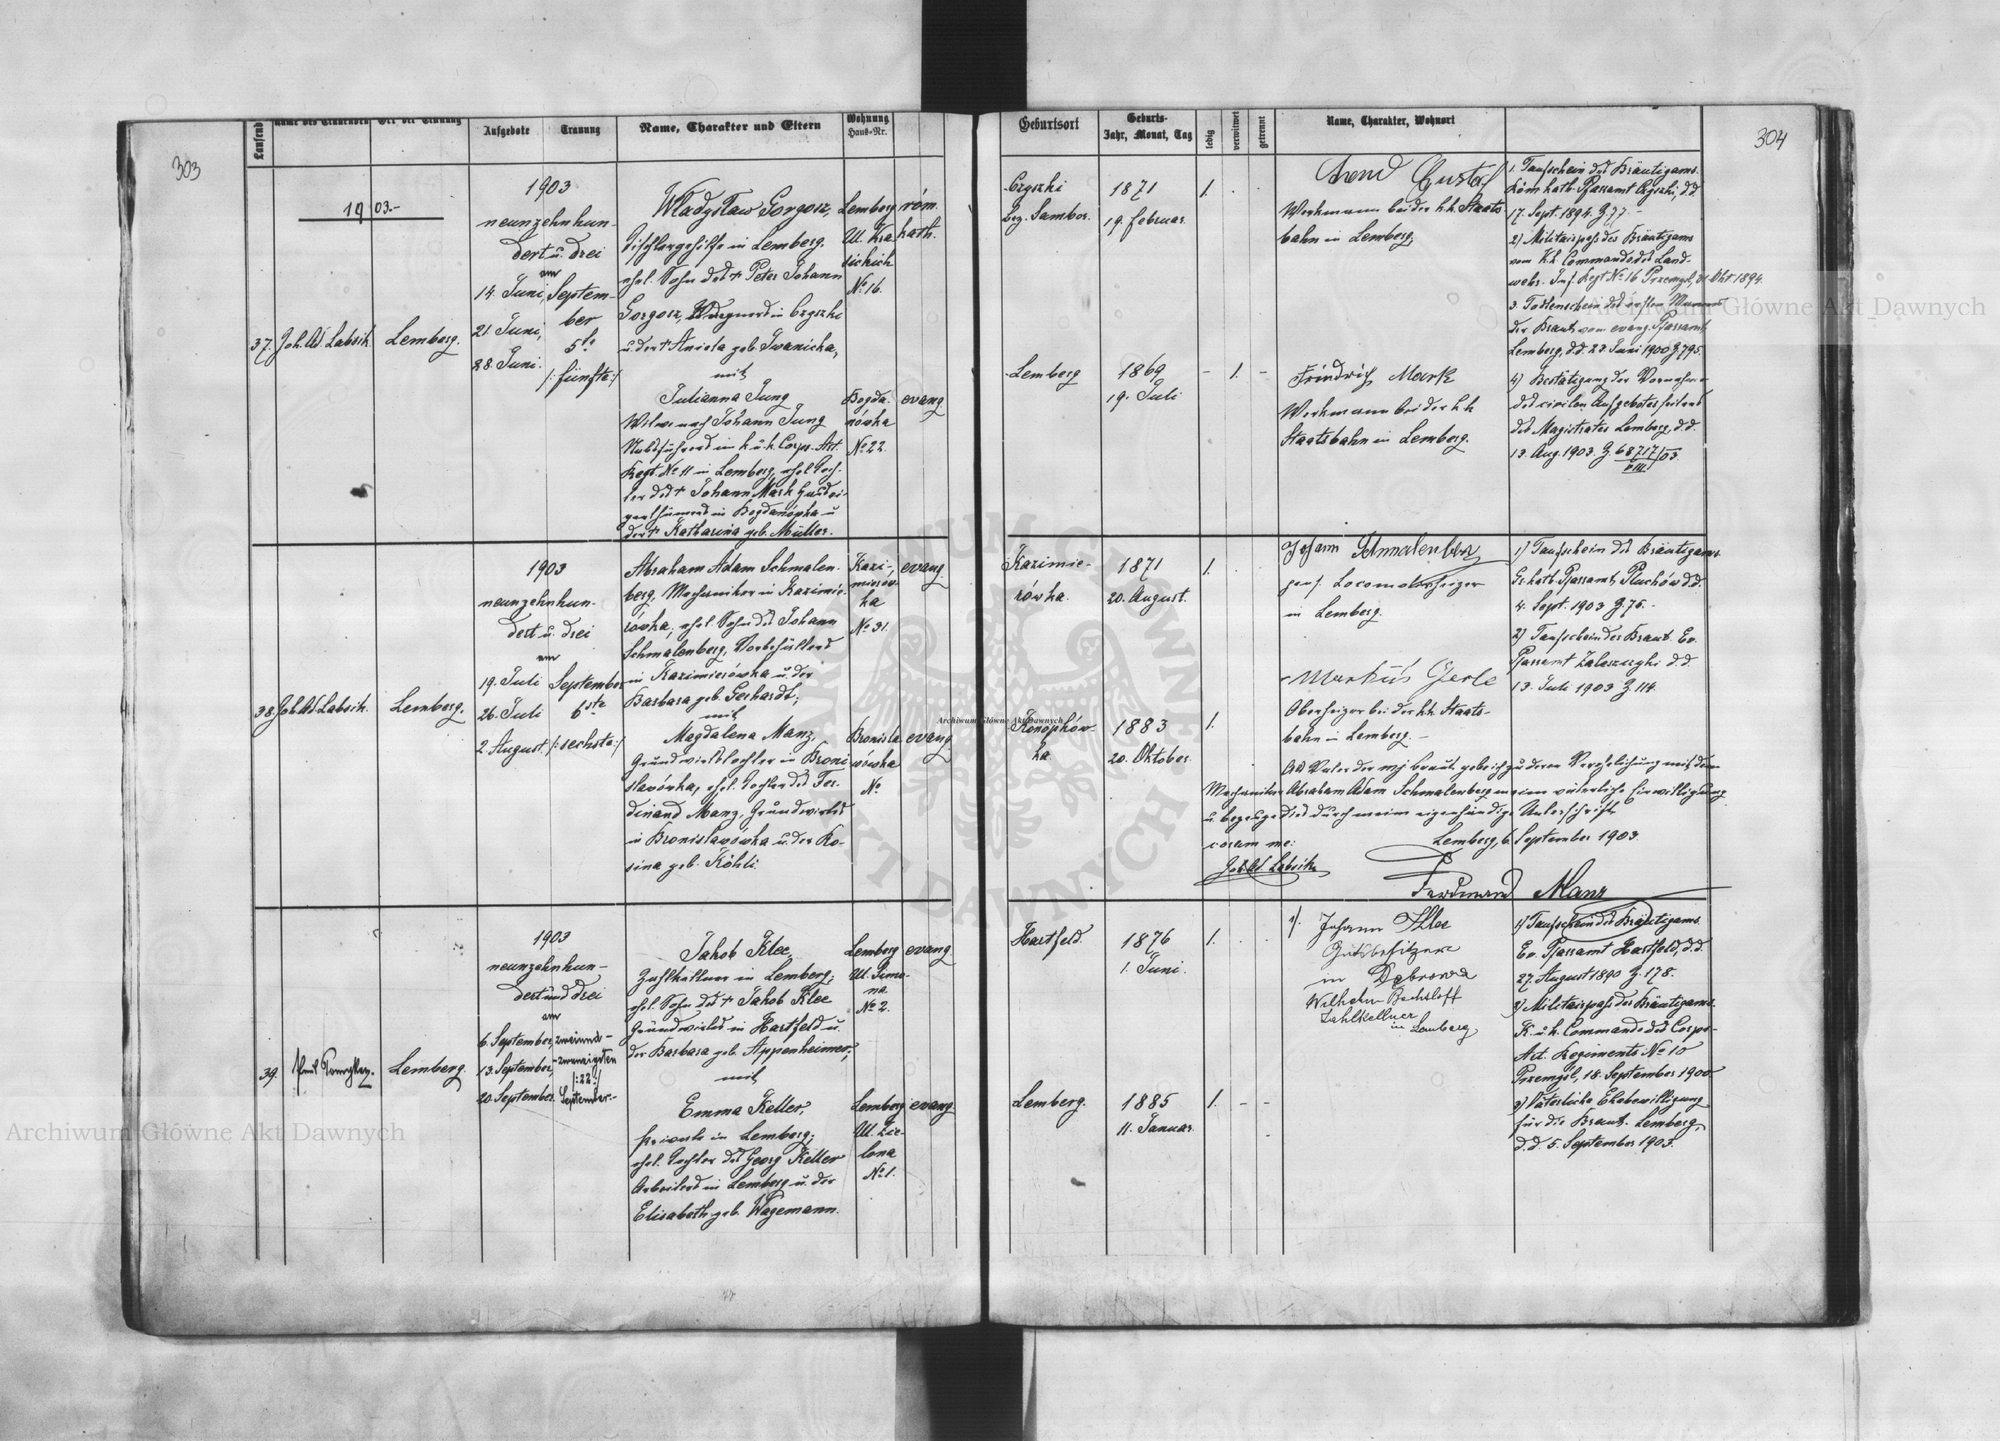 303
Laufende
Name des Trauenden
Ort der Trauung
Aufgebote
Trauung
Name, Charakter und Eltern
Wohnung
Haus-Nr.
1903.-
37.
Joh. Ad. Labsik.
Lemberg.
1903
neunzehnhun-
dert u. drei
am
14. Juni,
21. Juni,
28. Juni.
Septem-
ber
5te
/: fünfte :/
Władysław Gorgosz,
Tischlergehilfe in Lemberg,
ehel. Sohn des + Peter Johann
Gorgosz, in Czyszki
u. der + Aniela geb. Iwanicka,
mit
Julianna Jung
Witwe nach Johann Jung
im k. u. k. Corps. Art.
Regt. No 11 in Lemberg, ehel. Toch-
ter des + Johann Mark Grundei-
genthümers in Bogdanówka u
der + Katharina geb. Müller.
Lemberg
Ul. Kra
sickich
No 16.
röm.
kath.
Bogda-
nówka
No 22.
evang
38.
Joh. Ad. Labsik.
Lemberg.
1903
neunzehnhun-
dert u. drei
am
19. Juli
26. Juli
2. August.
September
6ste
/: sechste :/
Abraham Adam Schmalen-
berg, Mechaniker in Kazimie-
rówka, ehel. Sohn des Johann
Schmalenberg,
in Kazimierówka u. der
Barbara geb. Gerhardt,
mit
Magdalena Manz,
Grundwirtstochter in Broni
sławówka, ehel. Tochter des Fer-
dinand Manz, Grundwirtes
in Bronisławówka u. der Ro-
sina geb. Köhli.
Kazi-
mierów
ka
No 31.
evang.
Bronisła
wówka
No
evang.
39.
Lemberg.
1903
neunzehnhun-
dert und drei
am
6. September,
13. September,
20. September.
zweiund-
zwanzigsten
/: 22 :/
September.-
Jakob Klee,
Zahlkellner in Lemberg,
ehel. Sohn des + Jakob Klee
Grundwirtes in Hartfeld u.
der Barbara geb. Appenheimer,
mit
Emma Keller,
Private in Lemberg,
ehel. Tochter des Georg Keller
Arbeiters in Lemberg u. der
Elisabeth geb. Wagemann.
Lemberg
Ul. Szmo-
na
No 2.
evang
Lemberg
Ul. Zie-
lona
No 1.
evang
304
Geburtsort
Geburts-
Jahr, Monat, Tag
ledig
verwitwet
getrennt
Name, Charakter, Wohnort
Czyszki
bez. Sambor.
1871
19. Februar.
1.
Arend Gustaf
Werkmann bei der k.k. Staats
bahn in Lemberg,
1. Taufschein des Bräutigams.
Röm kath. Pfarramt Czyszki, d.d.
17. Sept. 1894. Z. 77.-
2) Militairpass des Bräutigams
vom k.k. Commando des Land-
wehr. Inf. Regt No 16 Przemysl, 31. Okt. 1894.
3. Todtenschein des ersten Mannes
der Braut vom evang. Pfarramt
Lemberg, d.d. 23 Juni 1900 Z. 795.
4) Bestätigung der Vornahme
des civilen Aufgebotes seitens
des Magistrates Lemberg, d.d.
13. Aug. 1903. Z. 68717/03.
VIII
Lemberg
1869
19. Juli
- 1. -
Friedrich Mark
Werkmann bei der k.k.
Staatsbahn in Lemberg.
Kazimie-
rówka.
1871
20. August.
1.
Johann Schmalenberg
pens. Locomotivheizer
in Lemberg.
1) Taufschein des Bräutigams.
Gr. kath. Pfarramt, Pluchów d.d.
4. Sept. 1903 Z. 75.-
2) Taufschein der Braut. Ev.
Pfarramt Zaleszczyki d.d.
13. Juli 1903 Z. 114.
Konopków-
ka.
1883
20. Oktober.
1.
Markus Gerle
Oberheizer bei der k.k. Staats-
bahn in Lemberg.-
Als Vater der mj. Braut gebe ich zu deren Verehelichung mit dem
Mechaniker Abraham Adam Schmalenberg meine väterliche Einwilligung
u. bezeuge dies durch meine eigenhändige Unterschrift
Lemberg, 6. September 1903.
coram me:
Joh. Ad. Labsik
Ferdinand Manz
Hartfeld.
1876
1. Juni.
1.
1). Johann Klee
Gutsbesitzer
in Dąbrowa
Wilhelm Bechtloff
Zahlkellner
in Lemberg
1) Taufschein des Bräutigams.
Ev. Pfarramt Hartfeld, d.d.
27. August 1890 Z. 178.
2) Militairpass des Bräutigams.
K. u. k. Commando des Corps-
Art. Regiments No 10
Przemyśl, 18. September 1900
3) Väterliche Ehebewilligung
für die Braut. Lemberg,
d.d. 5. September 1903.
Lemberg.
1885
11. Januar.
1. - -
Archiwum Główne Akt Dawnych
Archiwum Główne Akt Dawnych
Archiwum Główne Akt Dawnych
ARCHIWUM GŁÓWNE AKT DAWNYCH